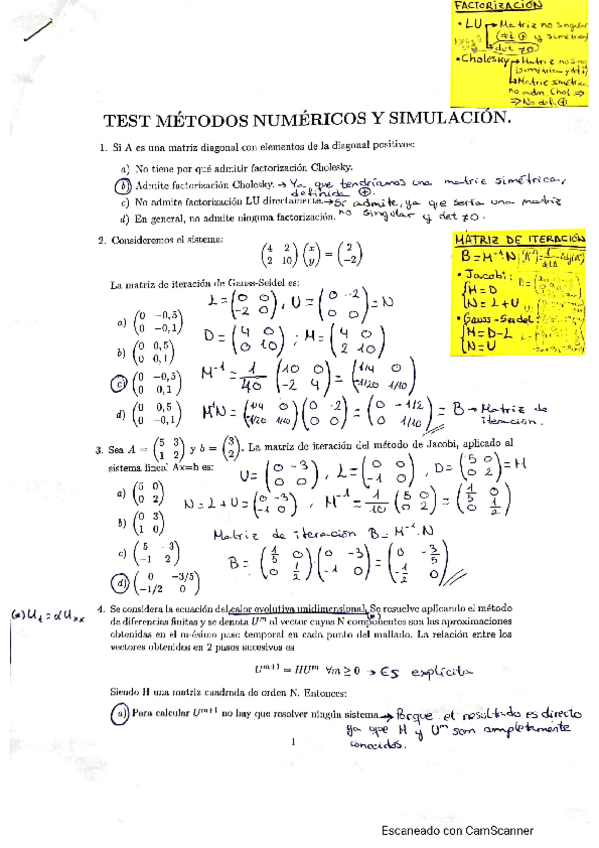 FACTORIZACIÓN
• LU → Matriz no singular
(def ⊕ y simétrica)
det ≠0
• Cholesky → Matriz no sing
(simétrica y def)
→ Matriz simétrica
no adm Chol ⇒
⇒ No def. ⊕
TEST MÉTODOS NUMÉRICOS Y SIMULACIÓN.
1. Si A es una matriz diagonal con elementos de la diagonal positivos:
a) No tiene por qué admitir factorización Cholesky.
b) Admite factorización Cholesky. → Ya que tendríamos una matriz simétrica,
definida ⊕.
c) No admite factorización LU directamente. → Sí admite, ya que sería una matriz
d) En general, no admite ninguna factorización. no singular y det ≠0.
2. Consideremos el sistema:
(4 2; 2 10) (x; y) = (2; -2)
MATRIZ DE ITERACIÓN
B = M⁻¹N
• Jacobi:
M = D
N = L + U
• Gauss-Seidel:
M = D - L
N = U
La matriz de iteración de Gauss-Seidel es:
L = (0 0; -2 0), U = (0 -2; 0 0) = N
a) (0 -0,5; 0 -0,1)
D = (4 0; 0 10); M = (4 0; 2 10)
b) (0 0,5; 0 0,1)
M⁻¹ = 1/40 (10 0; -2 4) = (1/4 0; -1/20 1/10)
c) (0 -0,5; 0 0,1)
d) (0 0,5; 0 -0,1)
M⁻¹N = (1/4 0; 1/20 1/10) (0 -2; 0 0) = (0 -1/2; 0 1/10) = B → Matriz de
iteración.
3. Sea A = (5 3; 1 2) y b = (3; 2). La matriz de iteración del método de Jacobi, aplicado al
sistema lineal Ax=b es:
U = (0 -3; 0 0), L = (0 0; -1 0), D = (5 0; 0 2) = M
a) (5 0; 0 2)
N = L + U = (0 -3; -1 0), M⁻¹ = 1/10 (5 0; 0 2) = (1/5 0; 0 1/2)
b) (0 3; 1 0)
Matriz de iteración B = M⁻¹·N
c) (5 -3; -1 2)
B = (1/5 0; 0 1/2) · (0 -3; -1 0) = (0 -3/5; -1/2 0)
d) (0 -3/5; -1/2 0)
(*) Uₜ = αUₓₓ
4. Se considera la ecuación del calor evolutiva unidimensional. Se resuelve aplicando el método
(*)
de diferencias finitas y se denota Uᵐ al vector cuyas N componentes son las aproximaciones
obtenidas en el m-ésimo paso temporal en cada punto del mallado. La relación entre los
vectores obtenidos en 2 pasos sucesivos es
Uᵐ⁺¹ = HUᵐ ∀m ≥ 0 → Es explícita
Siendo H una matriz cuadrada de orden N. Entonces:
a) Para calcular Uᵐ⁺¹ no hay que resolver ningún sistema → Porque el resultado es directo
ya que H y Uᵐ son completamente
conocidos.
1
Escaneado con CamScanner